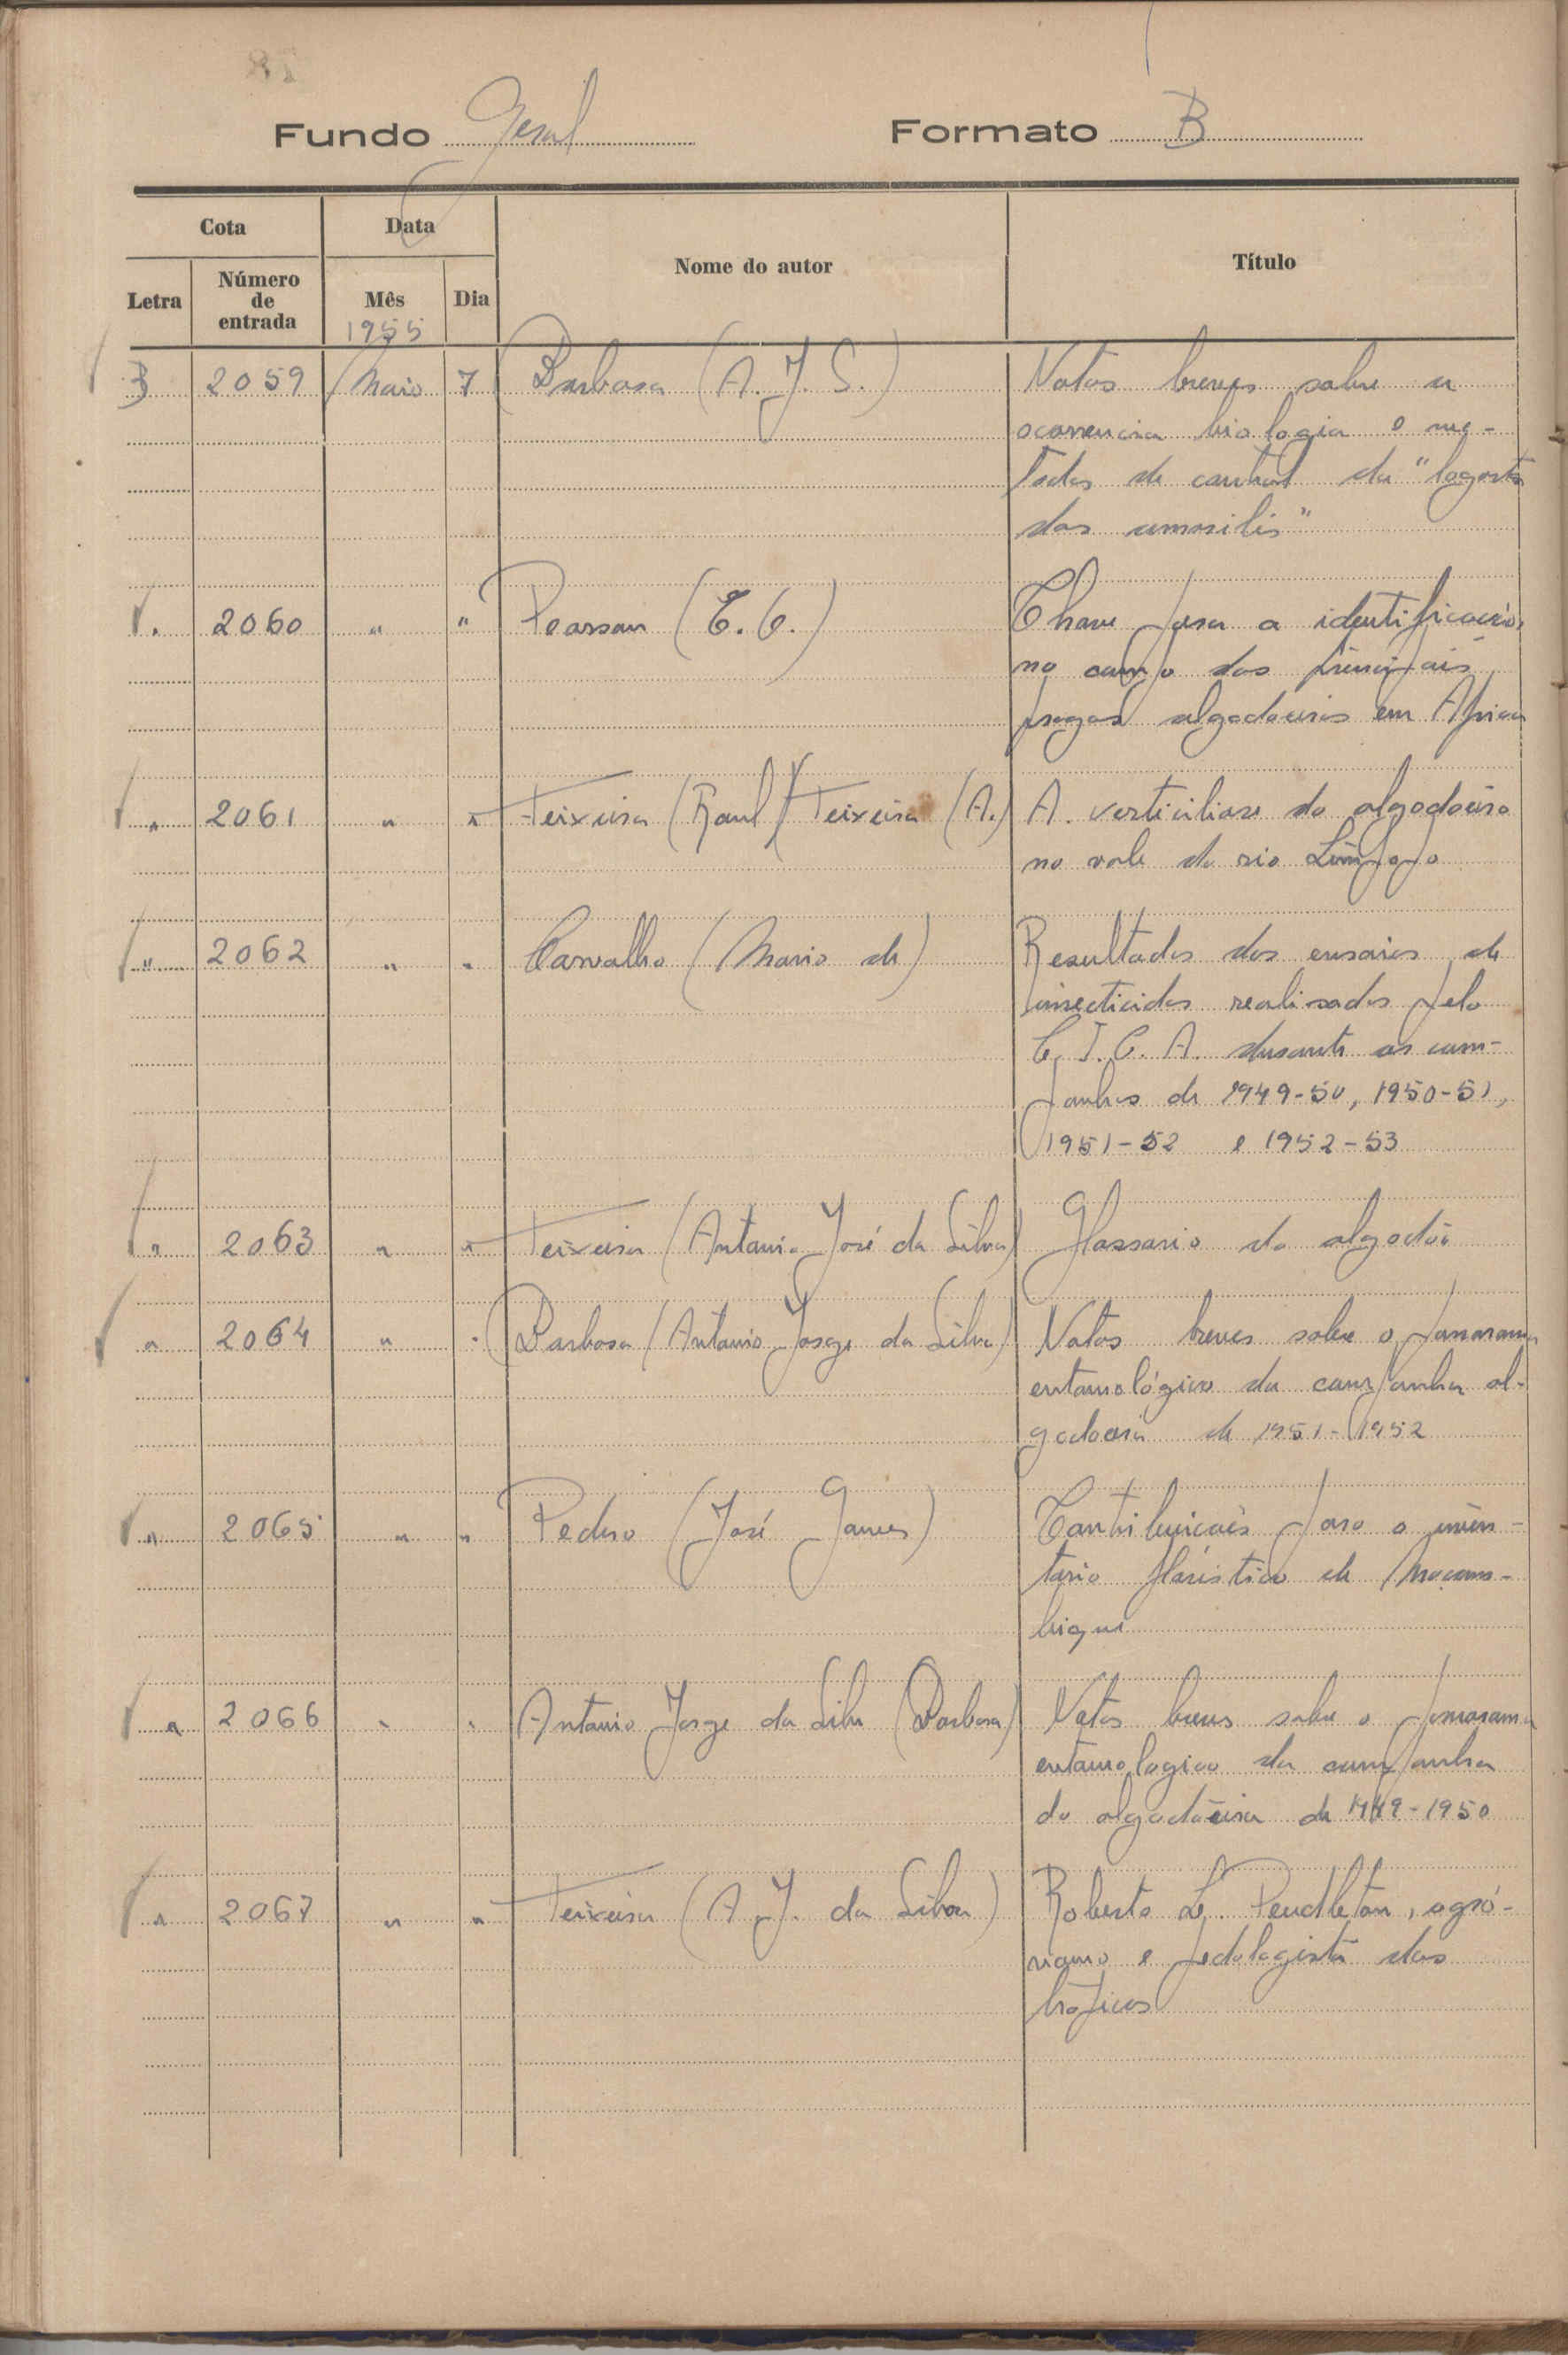 Fundo Geral Formato B
Cota Data Nome do autor Título
Letra Número de entrada Mês Dia
1955
B 2059 Maio 7 Barbosa (A. J. S.) Notas breves sobre a
ocorrencia biologia e me-
todos de control da "lagarta
das
" 2060 " " Pearson (E. O.) Chave para a identificação,
no campo das principais
pragas algodoeiras em Africa
" 2061 " " Teixeira (Raul) Teixeira (A.) A. verticiliose do algodoeiro
no vale do rio Limpopo
" 2062 " " Carvalho (Mario de) Resultados dos ensaios de
insecticidas realisados pelo
C. I. C. A. durante as cam-
panhas de 1949-50, 1950-51,
1951-52 e 1952-53
" 2063 " " Teixeira (Antonio José da Silva) Glossario do algodão
" 2064 " " Barbosa (Antonio Jorge da Silva) Notas breves sobre o panorama
entomológico da campanha al-
godoeira de 1951-1952
" 2065 " " Pedro (José Gomes) Contribuições para o inven-
tario floristico de Moçam-
bique
" 2066 " " Antonio Jorge da Silva (Barbosa) Notas breves sobre o panorama
entomologico da campanha
do algodoeira de 1949-1950
" 2067 " " Teixeira (A. J. da Silva) Roberto L. Pendleton, agró-
nomo e pedologista dos
trópicos